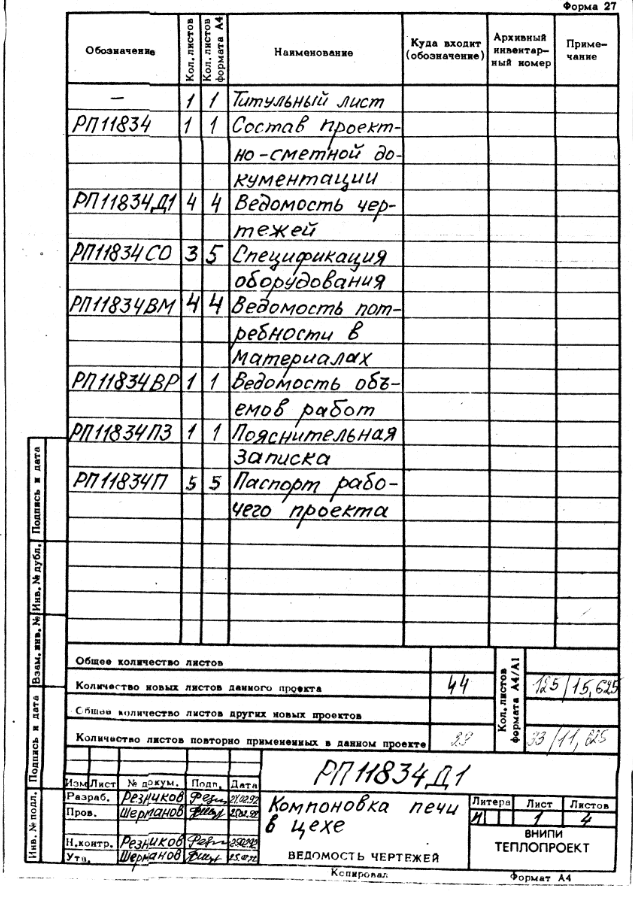 Форма 27
Обозначение Кол. листов Кол. листов формата А4 Наименование Куда входит (обозначение) Архивный инвентарный номер Примечание
– 1 1 Титульный лист
РП11834 1 1 Состав проект-
но-сметной до-
кументации
РП11834Д1 4 4 Ведомость чер-
тежей
РП11834СО 3 5 Спецификация
оборудования
РП11834ВМ 4 4 Ведомость пот-
ребности в
материалах
РП11834ВР 1 1 Ведомость объ-
емов работ
РП11834ПЗ 1 1 Пояснительная
записка
РП11834П 5 5 Паспорт рабо-
чего проекта
Общее количество листов
Количество новых листов данного проекта 44
Кол. листов формата А4/А1
125/15,625
Общее количество листов других новых проектов
Количество листов повторно примененных в данном проекте
РП11834Д1
Изм Лист № докум. Подп. Дата
Разраб. Резников
Пров. Шерманов
Н.контр. Резников
Утв. Шерманов
Компоновка печи
в цехе
ВЕДОМОСТЬ ЧЕРТЕЖЕЙ
Литера Лист Листов
И 1 4
ВНИПИ
ТЕПЛОПРОЕКТ
Копировал Формат А4
Инв. № подл. Подпись и дата Взам. инв. № Инв. № дубл. Подпись и дата